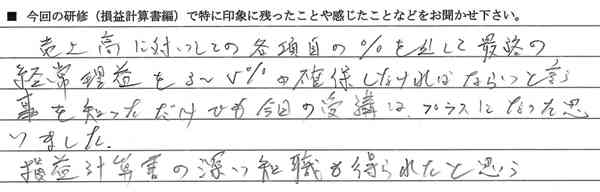 ■ 今回の研修（損益計算書編）で特に印象に残ったことや感じたことなどをお聞かせ下さい。
売上高に対しての各項目の%を出して最終の
経常利益を3～5%の確保しなければならいと言う
事を知っただけでも今回の受講は、プラスになった思
いました。
損益計算書の深い知識も得られたと思う